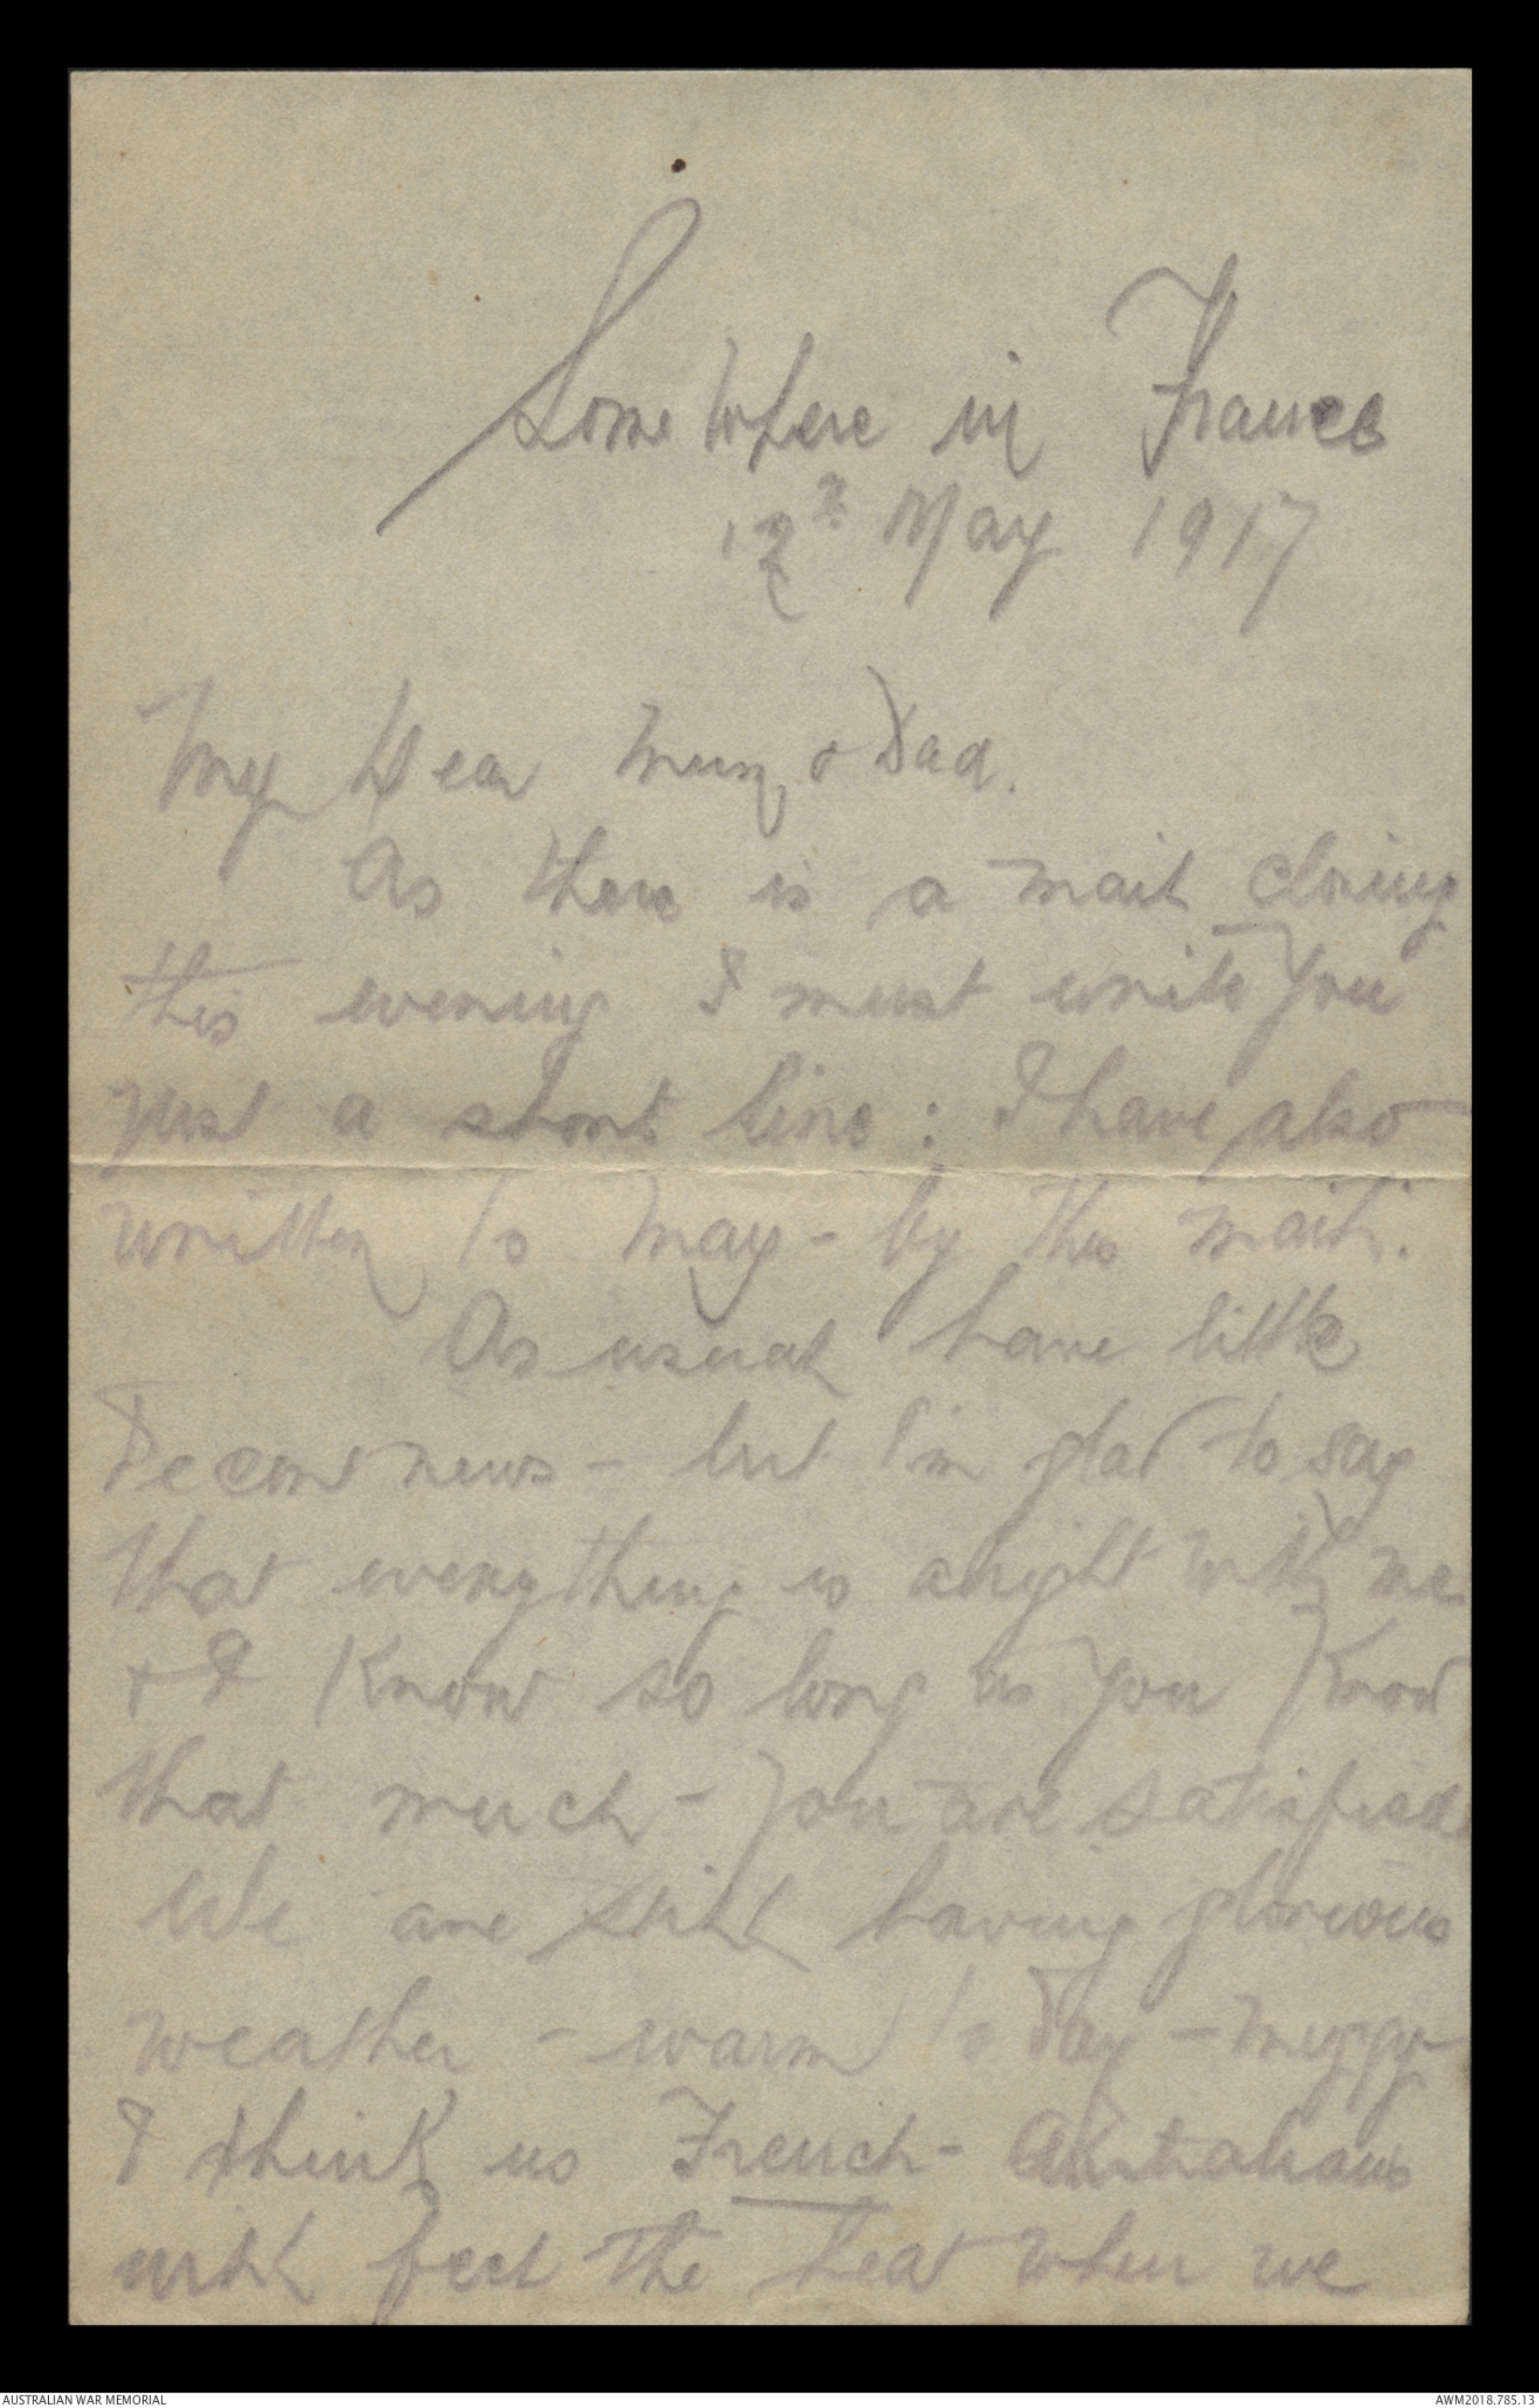 Somewhere in France
12 May 1917
My Dear Mum & Dad.
As there is a mail closing
this evening I must write you
just a short line: I have also
written to May - by this mail.
As usual have little
Decent news - but I'm glad to say
that everything is alright with me
& I know so long as you know
that much - you are satisfied
We are still having glorious
weather - warm to day - muggy
I think us French - Australians
will feel the heat when we
AUSTRALIAN WAR MEMORIAL
AWM2018.785.13